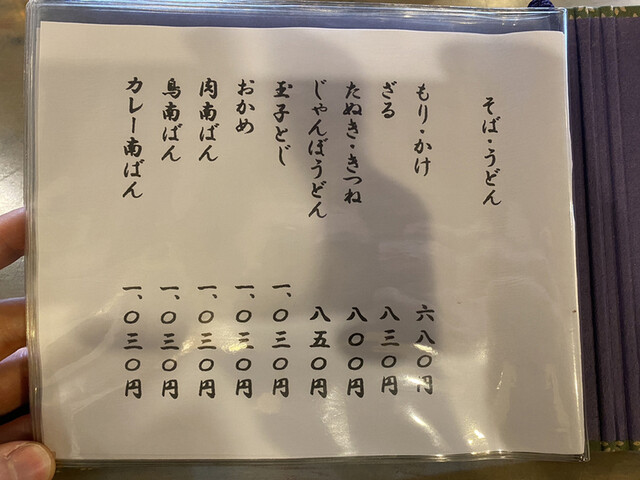 そば・うどん
もり・かけ 六八〇円
ざる 八三〇円
たぬき・きつね 八〇〇円
じゃんぼうどん 八五〇円
玉子とじ 一、〇三〇円
おかめ 一、〇三〇円
肉南ばん 一、〇三〇円
鳥南ばん 一、〇三〇円
カレー南ばん 一、〇三〇円